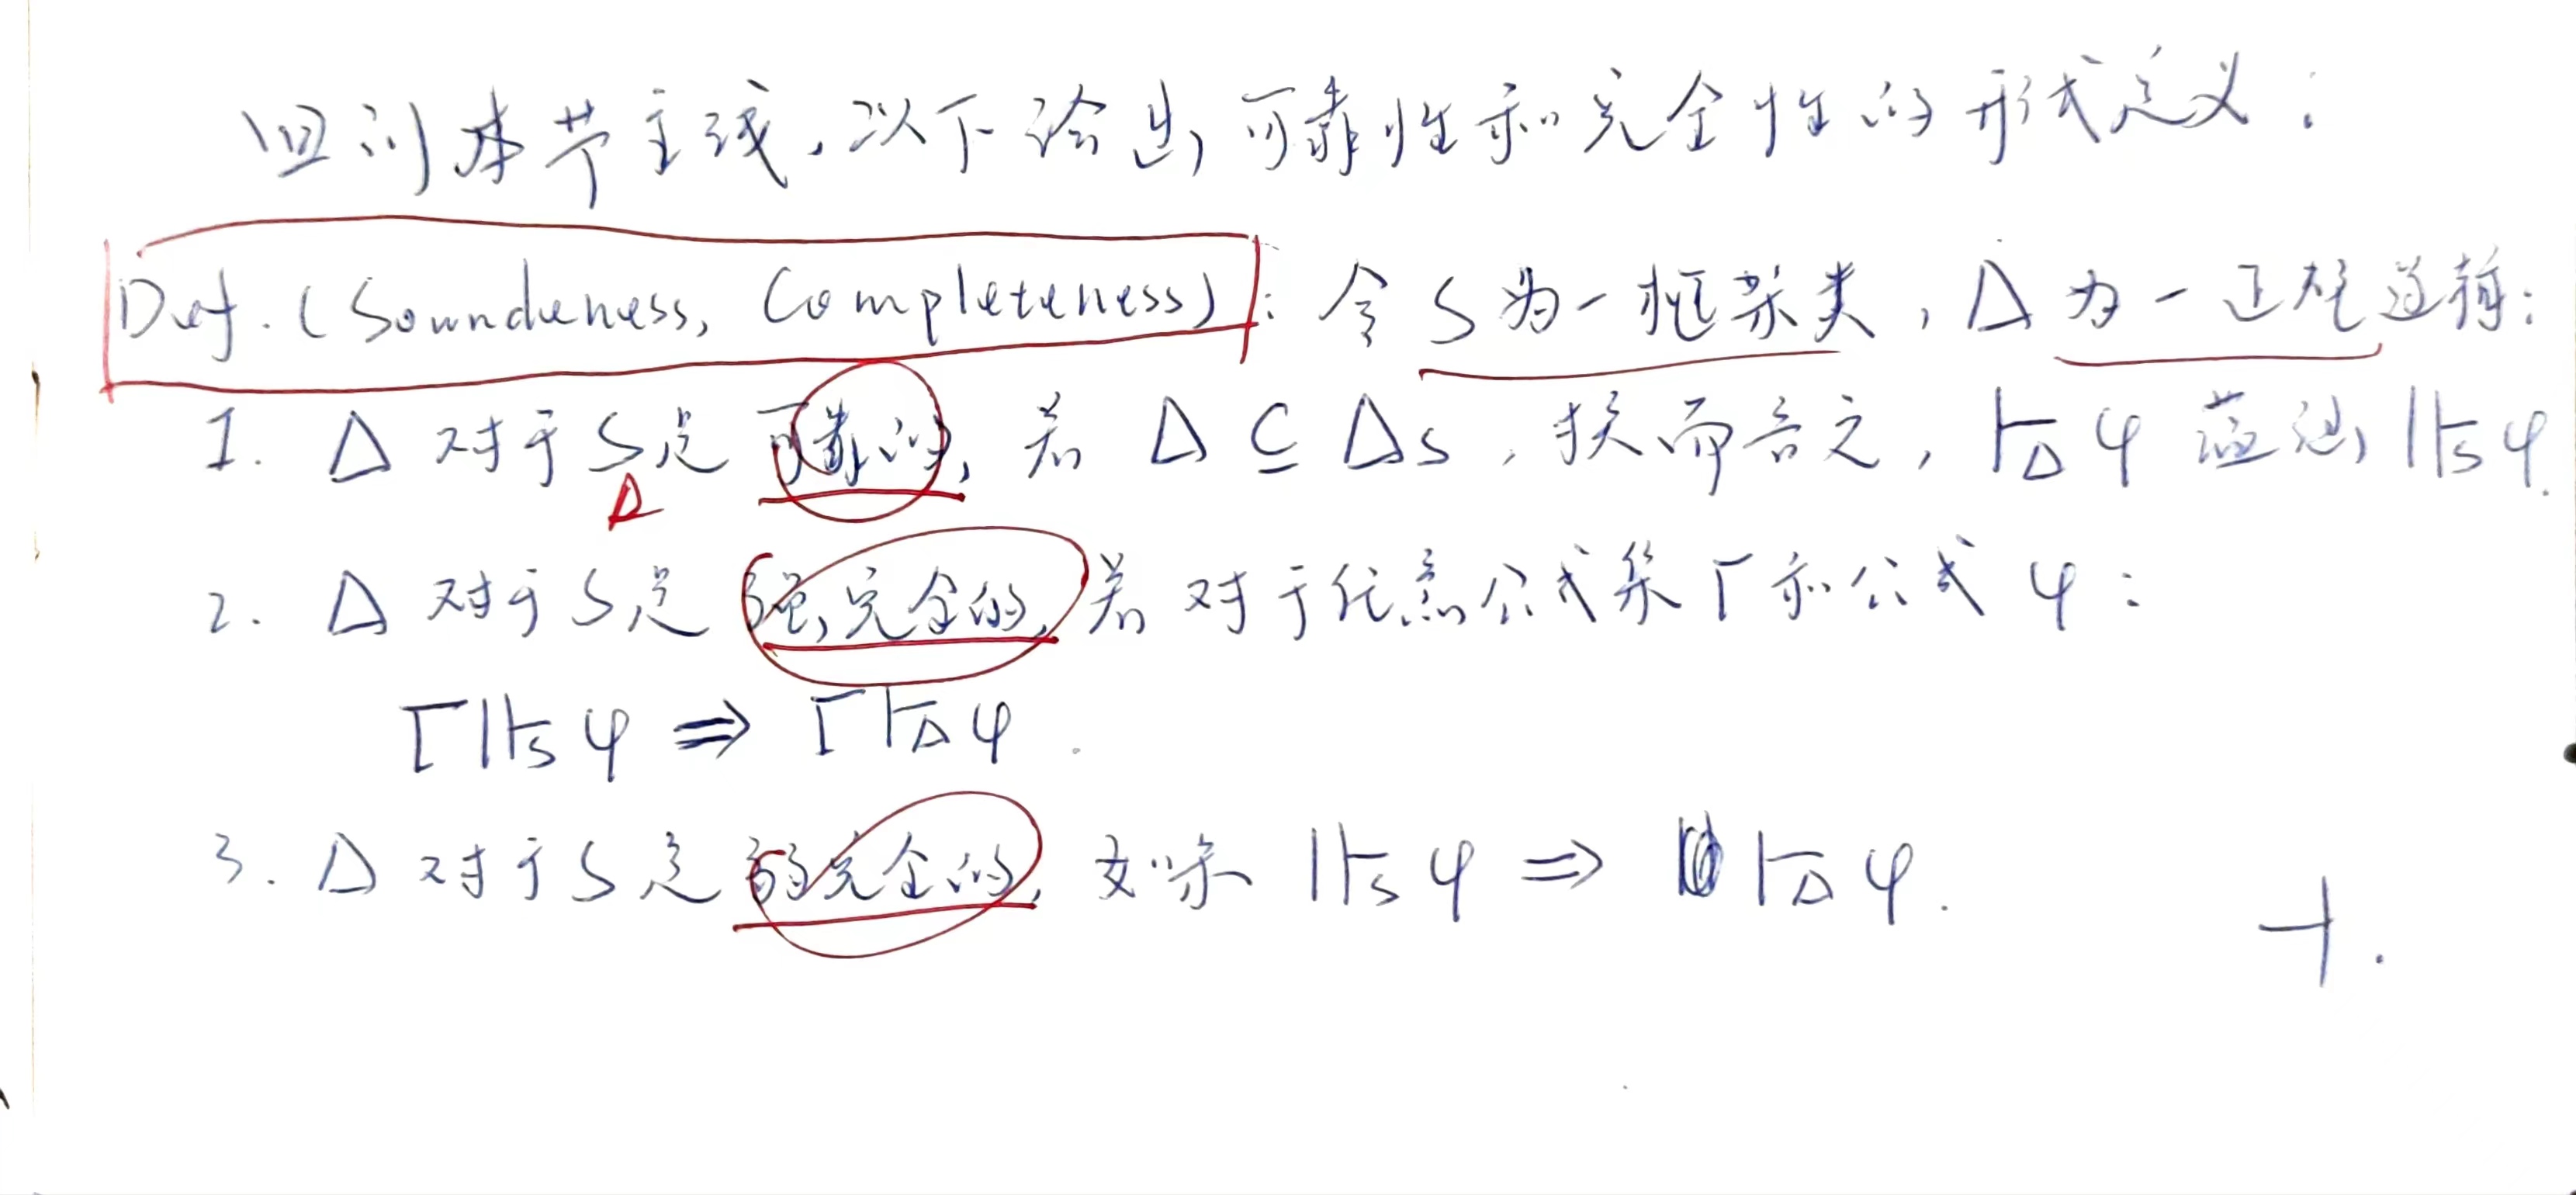 回到本节主线,以下给出可靠性和完全性的形式定义:
Def.(Soundeness, Completeness): 令 S 为一框架类, Δ 为一正规逻辑:
1. Δ 对于 S 是可靠的, 若 Δ ⊆ Δs, 换而言之, ⊢Δ φ 蕴涵 ⊩s φ.
Δ
2. Δ 对于 S 是强完全的, 若对于任意公式集 Γ 和公式 φ:
Γ ⊩s φ ⇒ Γ ⊢Δ φ.
3. Δ 对于 S 是弱完全的, 如果 ⊩s φ ⇒ ⊢Δ φ.
⊣.